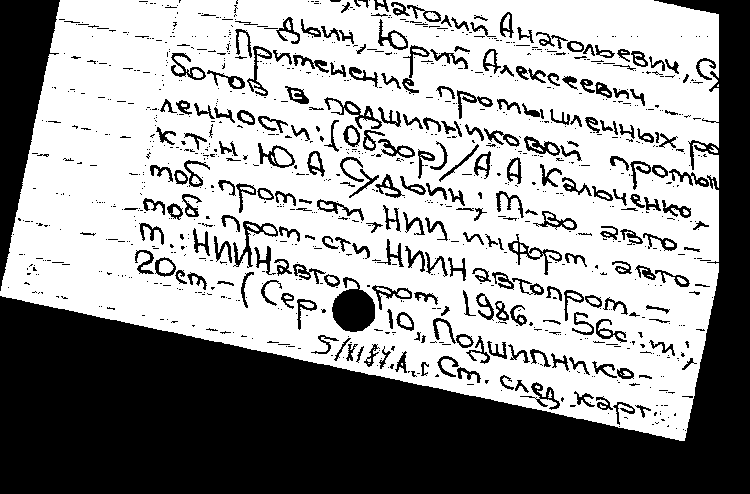 Анатолий Анатольевич, Су
дьин, Юрий Алексеевич.
Применение промышленных ро
ботов в подшипниковой промыш
ленности: (Обзор) / А.А. Калюченко,
к.т.н. Ю.А Судьин; М-во авто-
моб. пром-сти, НИИ информ. авто-
моб. пром-сти НИИНавтопром. –
М.: НИИНавтопром, 1986. – 56с.: ил.;
20см. – (Сер. 10 „Подшипнико-
См. след. карт.